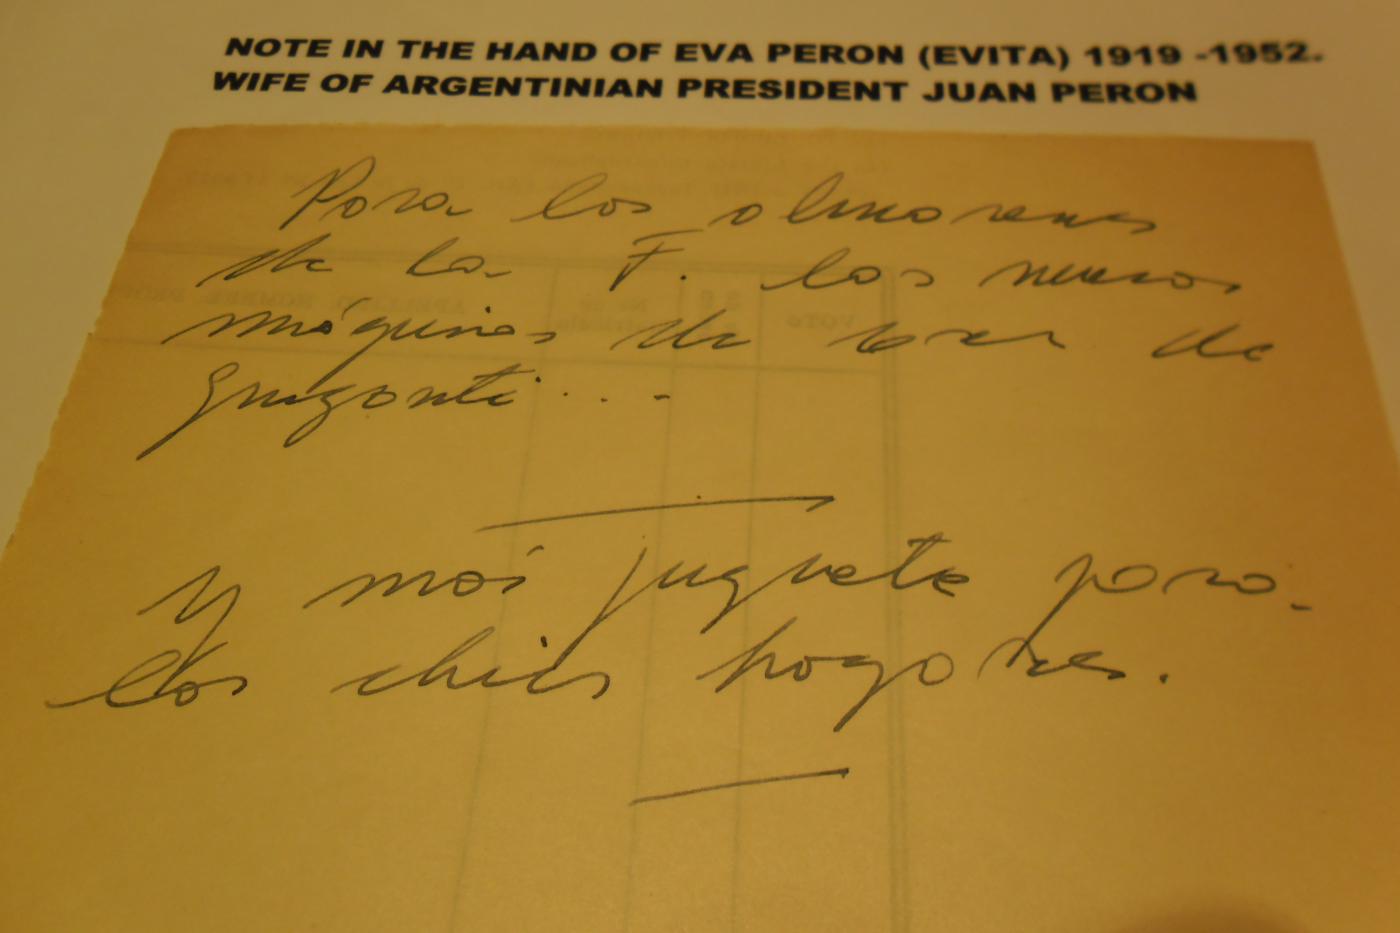 NOTE IN THE HAND OF EVA PERON (EVITA) 1919 -1952.
WIFE OF ARGENTINIAN PRESIDENT JUAN PERON
Para los almacenes
de la F. las nuevas
máquinas de coser de
...
Y más juguete para
los hogares.
VOTO
APELLIDO, NOMBRE